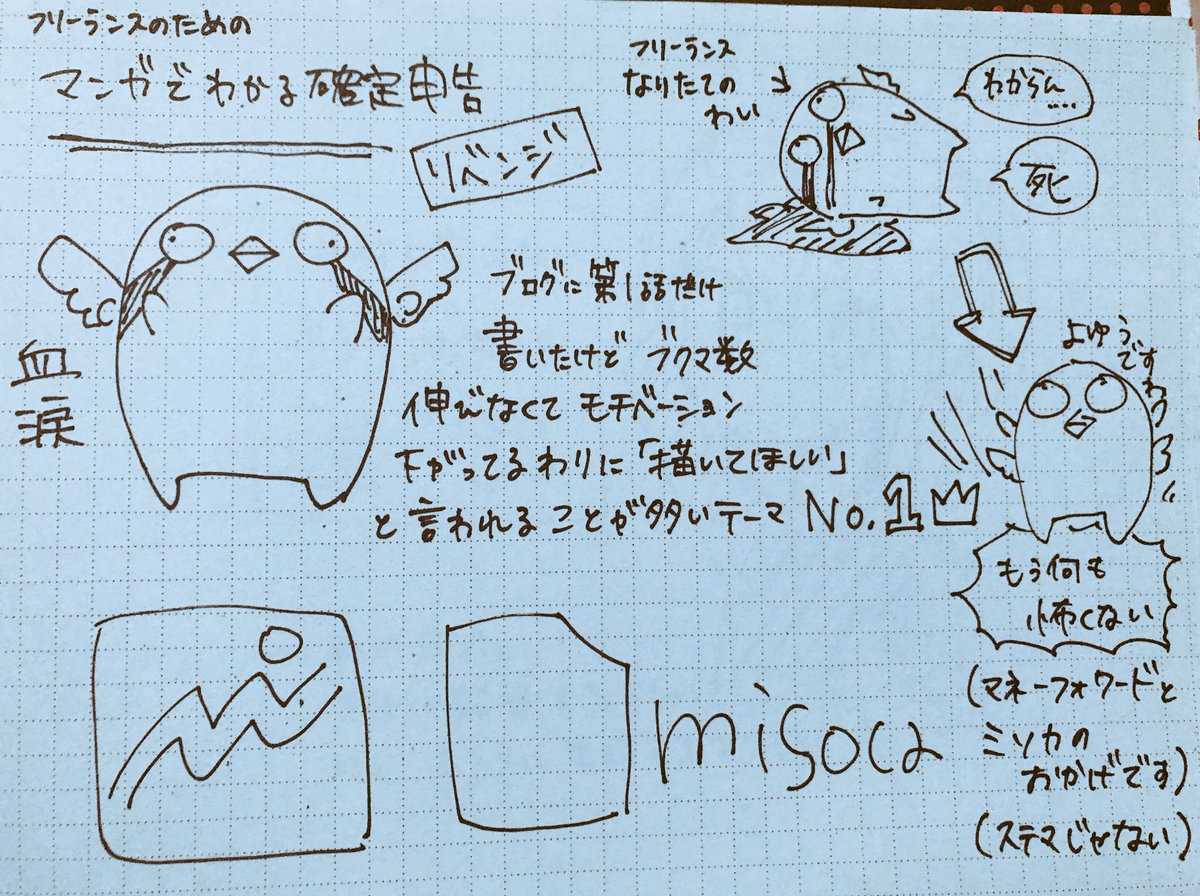 フリーランスのための
マンガでわかる確定申告
リベンジ
血涙
ブログに第1話だけ
書いたけど ブクマ数
伸びなくて モチベーション
下がってるわりに「描いてほしい」
と言われることが多いテーマ No.1
フリーランス
なりたての
わい
わからん....
死
よゆう
ですわ
もう何も
怖くない
(マネーフォワードと
ミソカの
おかげです)
(ステマじゃない)
misoca